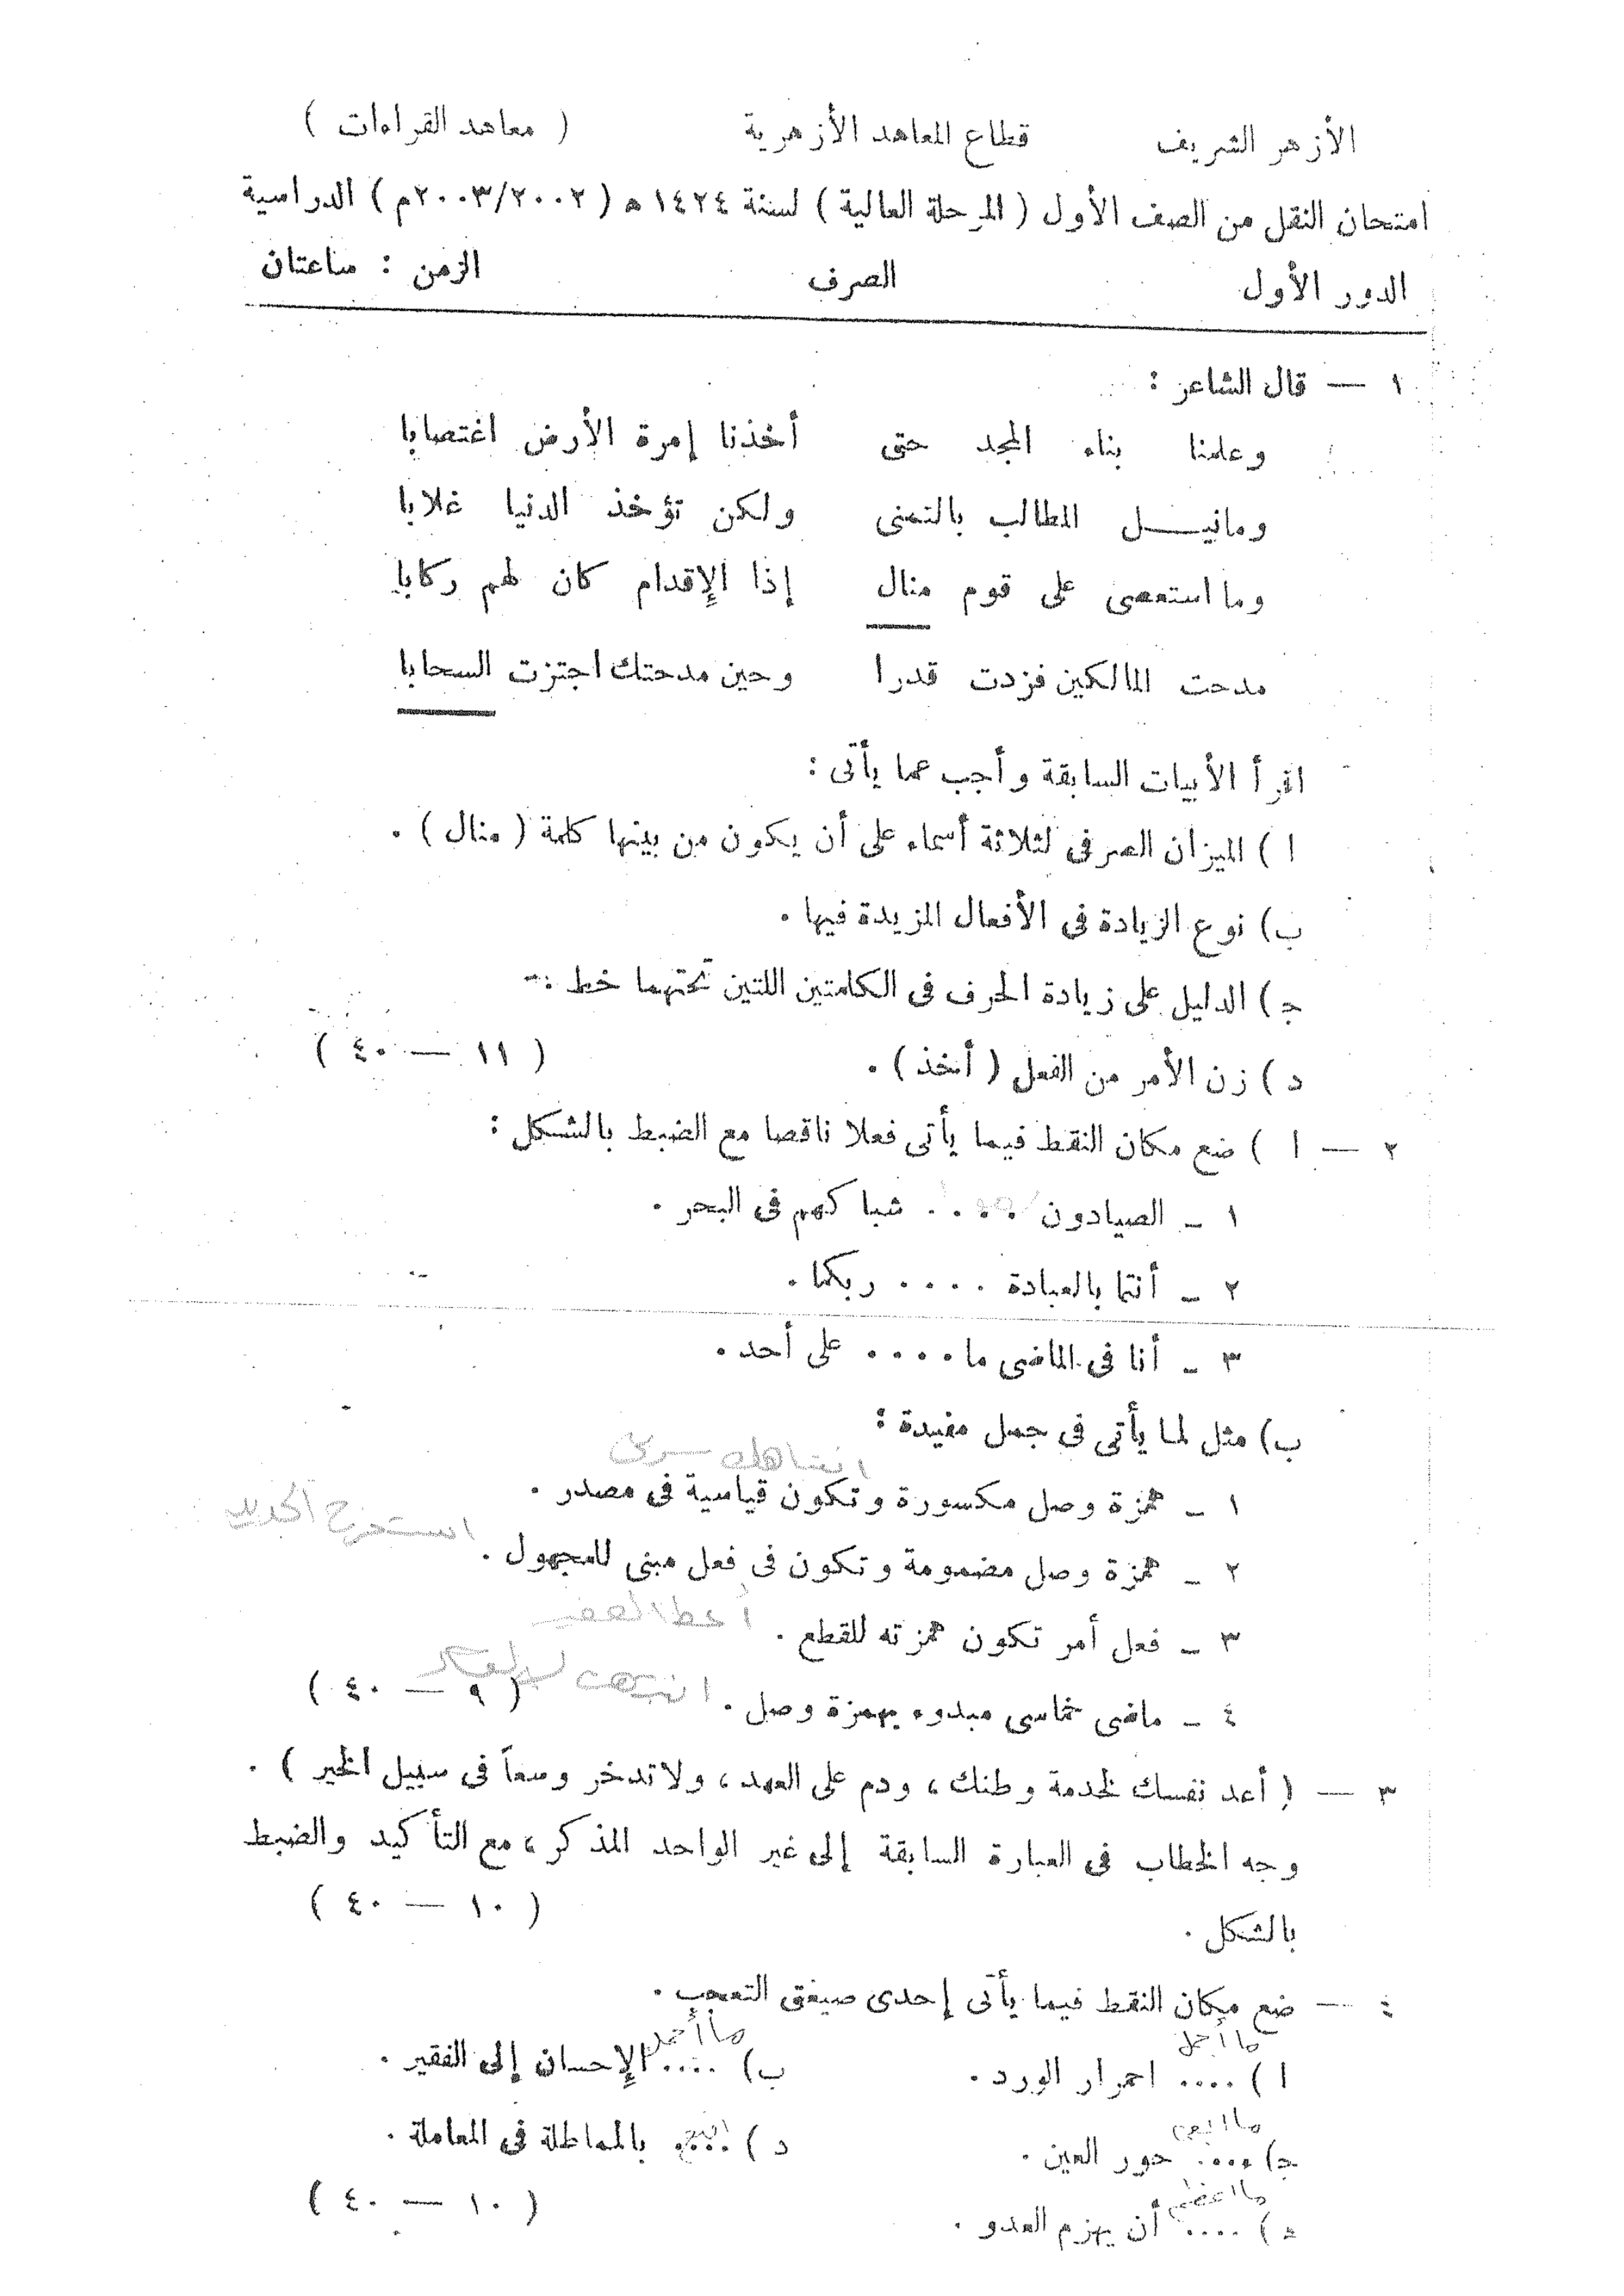 الأزهر الشريف قطاع المعاهد الأزهرية ( معاهد القراءات )
امتحان النقل من الصف الأول ( المرحلة العالية ) لسنة ١٤٢٤ هـ ( ٢٠٠٣/٢٠٠٢م ) الدراسية
الدور الأول الصرف الزمن : ساعتان
١ — قال الشاعر :
وعلمنا بناء المجد حتى أخذنا إمرة الأرض اغتصابا
ومانيـــل المطالب بالتمنى ولكن تؤخذ الدنيا غلابا
وما استعصى على قوم منال إذا الإقدام كان لهم ركابا
مدحت المالكين فزدت قدرا وحين مدحتك اجتزت السحابا
اقرأ الأبيات السابقة وأجب عما يأتى :
ا ) الميزان الصرفى لثلاثة أسماء على أن يكون من بينها كلمة ( منال ) .
ب) نوع الزيادة فى الأفعال المزيدة فيها .
جـ ) الدليل على زيادة الحرف فى الكلمتين اللتين تحتهما خط :-
د ) زن الأمر من الفعل ( أخذ ) . ( ١١ — ٤٠ )
٢ — ا ) ضع مكان النقط فيما يأتى فعلا ناقصا مع الضبط بالشكل :
١ - الصيادون .... شباكهم فى البحر .
٢ - أنتما بالعبادة .... ربكما .
٣ - أنا فى الماضى ما .... على أحد .
ب) مثل لما يأتى فى جمل مفيدة :
١ - همزة وصل مكسورة وتكون قياسية فى مصدر .
استخرج الحديد
٢ - همزة وصل مضمومة وتكون فى فعل مبنى للمجهول .
أعط الفقير
٣ - فعل أمر تكون همزته للقطع .
٤ - ماضى خماسى مبدوء بهمزة وصل . ( ٩ — ٤٠ )
٣ — ( أعد نفسك لخدمة وطنك ، ودم على العهد ، ولاتدخر وسعاً فى سبيل الخير ) .
وجه الخطاب فى العبارة السابقة إلى غير الواحد المذكر ، مع التأكيد والضبط
بالشكل . ( ١٠ — ٤٠ )
٤ — ضع مكان النقط فيما يأتى إحدى صيغتى التعجب .
ما أجمل ما أجمل
ا ) .... احمرار الورد . ب) .... الإحسان إلى الفقير .
جـ) .... حور العين . د ) .... بالمماطلة فى المعاملة .
ما أعظم
هـ ) .... أن يهزم العدو . ( ١٠ — ٤٠ )